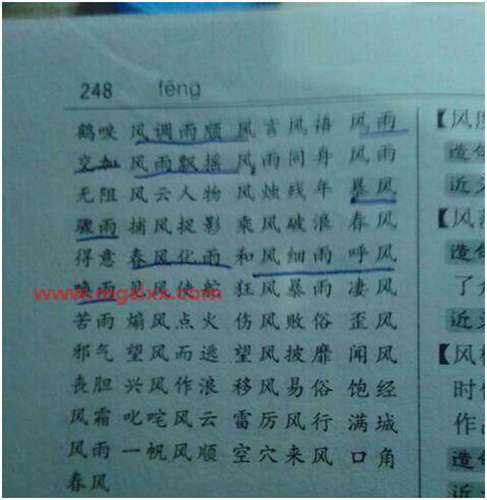 248 fēng
鹤唳 风调雨顺 风言风语 风雨
交加 风雨飘摇 风雨同舟 风雨
无阻 风云人物 风烛残年 暴风
骤雨 捕风捉影 乘风破浪 春风
得意 春风化雨 和风细雨 呼风
唤雨 见风使舵 狂风暴雨 凄风
苦雨 煽风点火 伤风败俗 歪风
邪气 望风而逃 望风披靡 闻风
丧胆 兴风作浪 移风易俗 饱经
风霜 叱咤风云 雷厉风行 满城
风雨 一帆风顺 空穴来风 口角
春风
www.mgalxx.com
【风
造句
近义
【风
造句
了
近义
【风
时
作
造句
近义